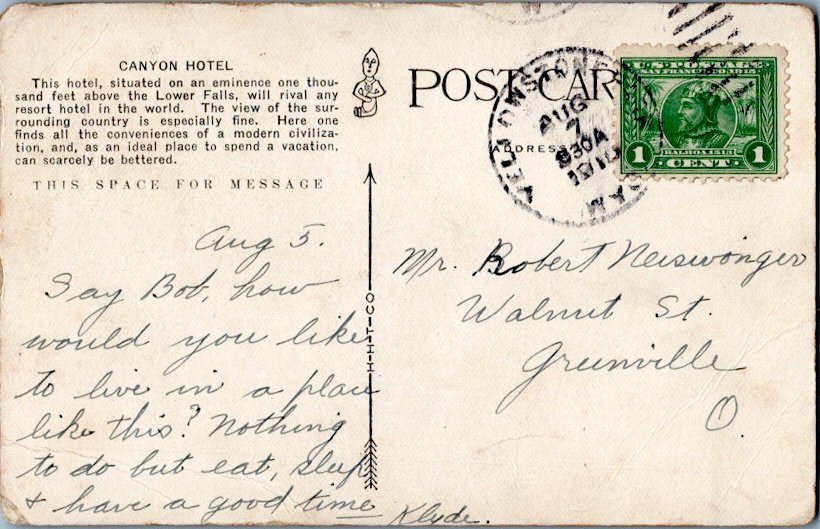 CANYON HOTEL
This hotel, situated on an eminence one thou-
sand feet above the Lower Falls, will rival any
resort hotel in the world. The view of the sur-
rounding country is especially fine. Here one
finds all the conveniences of a modern civiliza-
tion, and, as an ideal place to spend a vacation,
can scarcely be bettered.
THIS SPACE FOR MESSAGE
Aug 5.
Say Bob, how
would you like
to live in a place
like this? Nothing
to do but eat, sleep
& have a good time
Klyde.
H-H-T-CO
POST CAR
ADDRESS
YELLOWSTONE
AUG
7
830A
U.S. POSTAGE
SAN FRANCISCO 1915
BALBOA 1513
1 CENT 1
Mr. Robert Neiswonger
Walnut St.
Greenville
O.